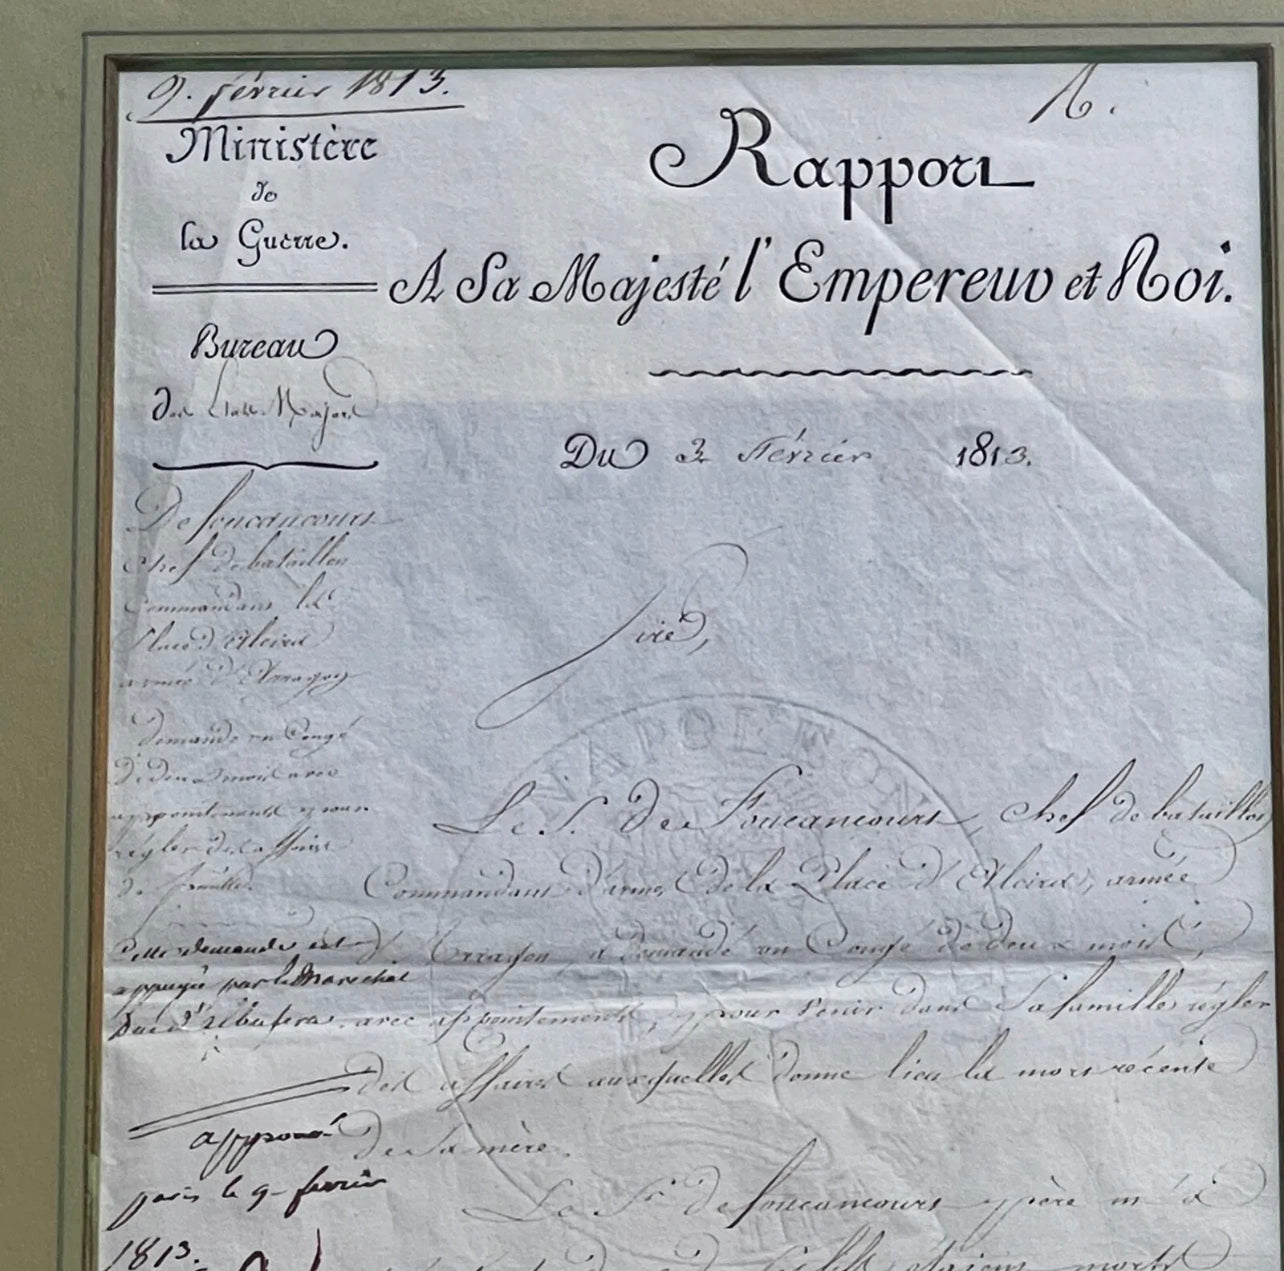 9. février 1813.
Ministère
de
la Guerre.
Rapport
A Sa Majesté l'Empereur et Roi.
Bureau
des Etats-Majors
Du 3 février 1813.
De foucancourt
chef de bataillon
Commandant la
Place d'Alcira
armée d'Arragon
demande un Congé
de deux mois avec
appointements pour
régler des affaires
de famille.
Cette demande est
appuyée par le Marechal
Duc d'Albufera.
approuvé
paris le 9 fevrier
1813.
Sire,
NAPOLEON
Le S. de Foucancourt, chef de bataillon
Commandant d'armes de la Place d'Alcira, armée
d'Arragon, a demandé un Congé de deux mois,
avec appointements, pour venir dans sa famille régler
des affaires auxquelles donne lieu la mort récente
de sa mère.
Le Sr. de foucancourt père m'a